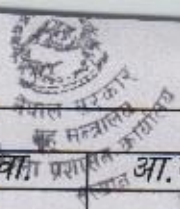 नेपाल सरकार
गृह मन्त्रालय
प्रशासन कार्यालय
वा. आ.